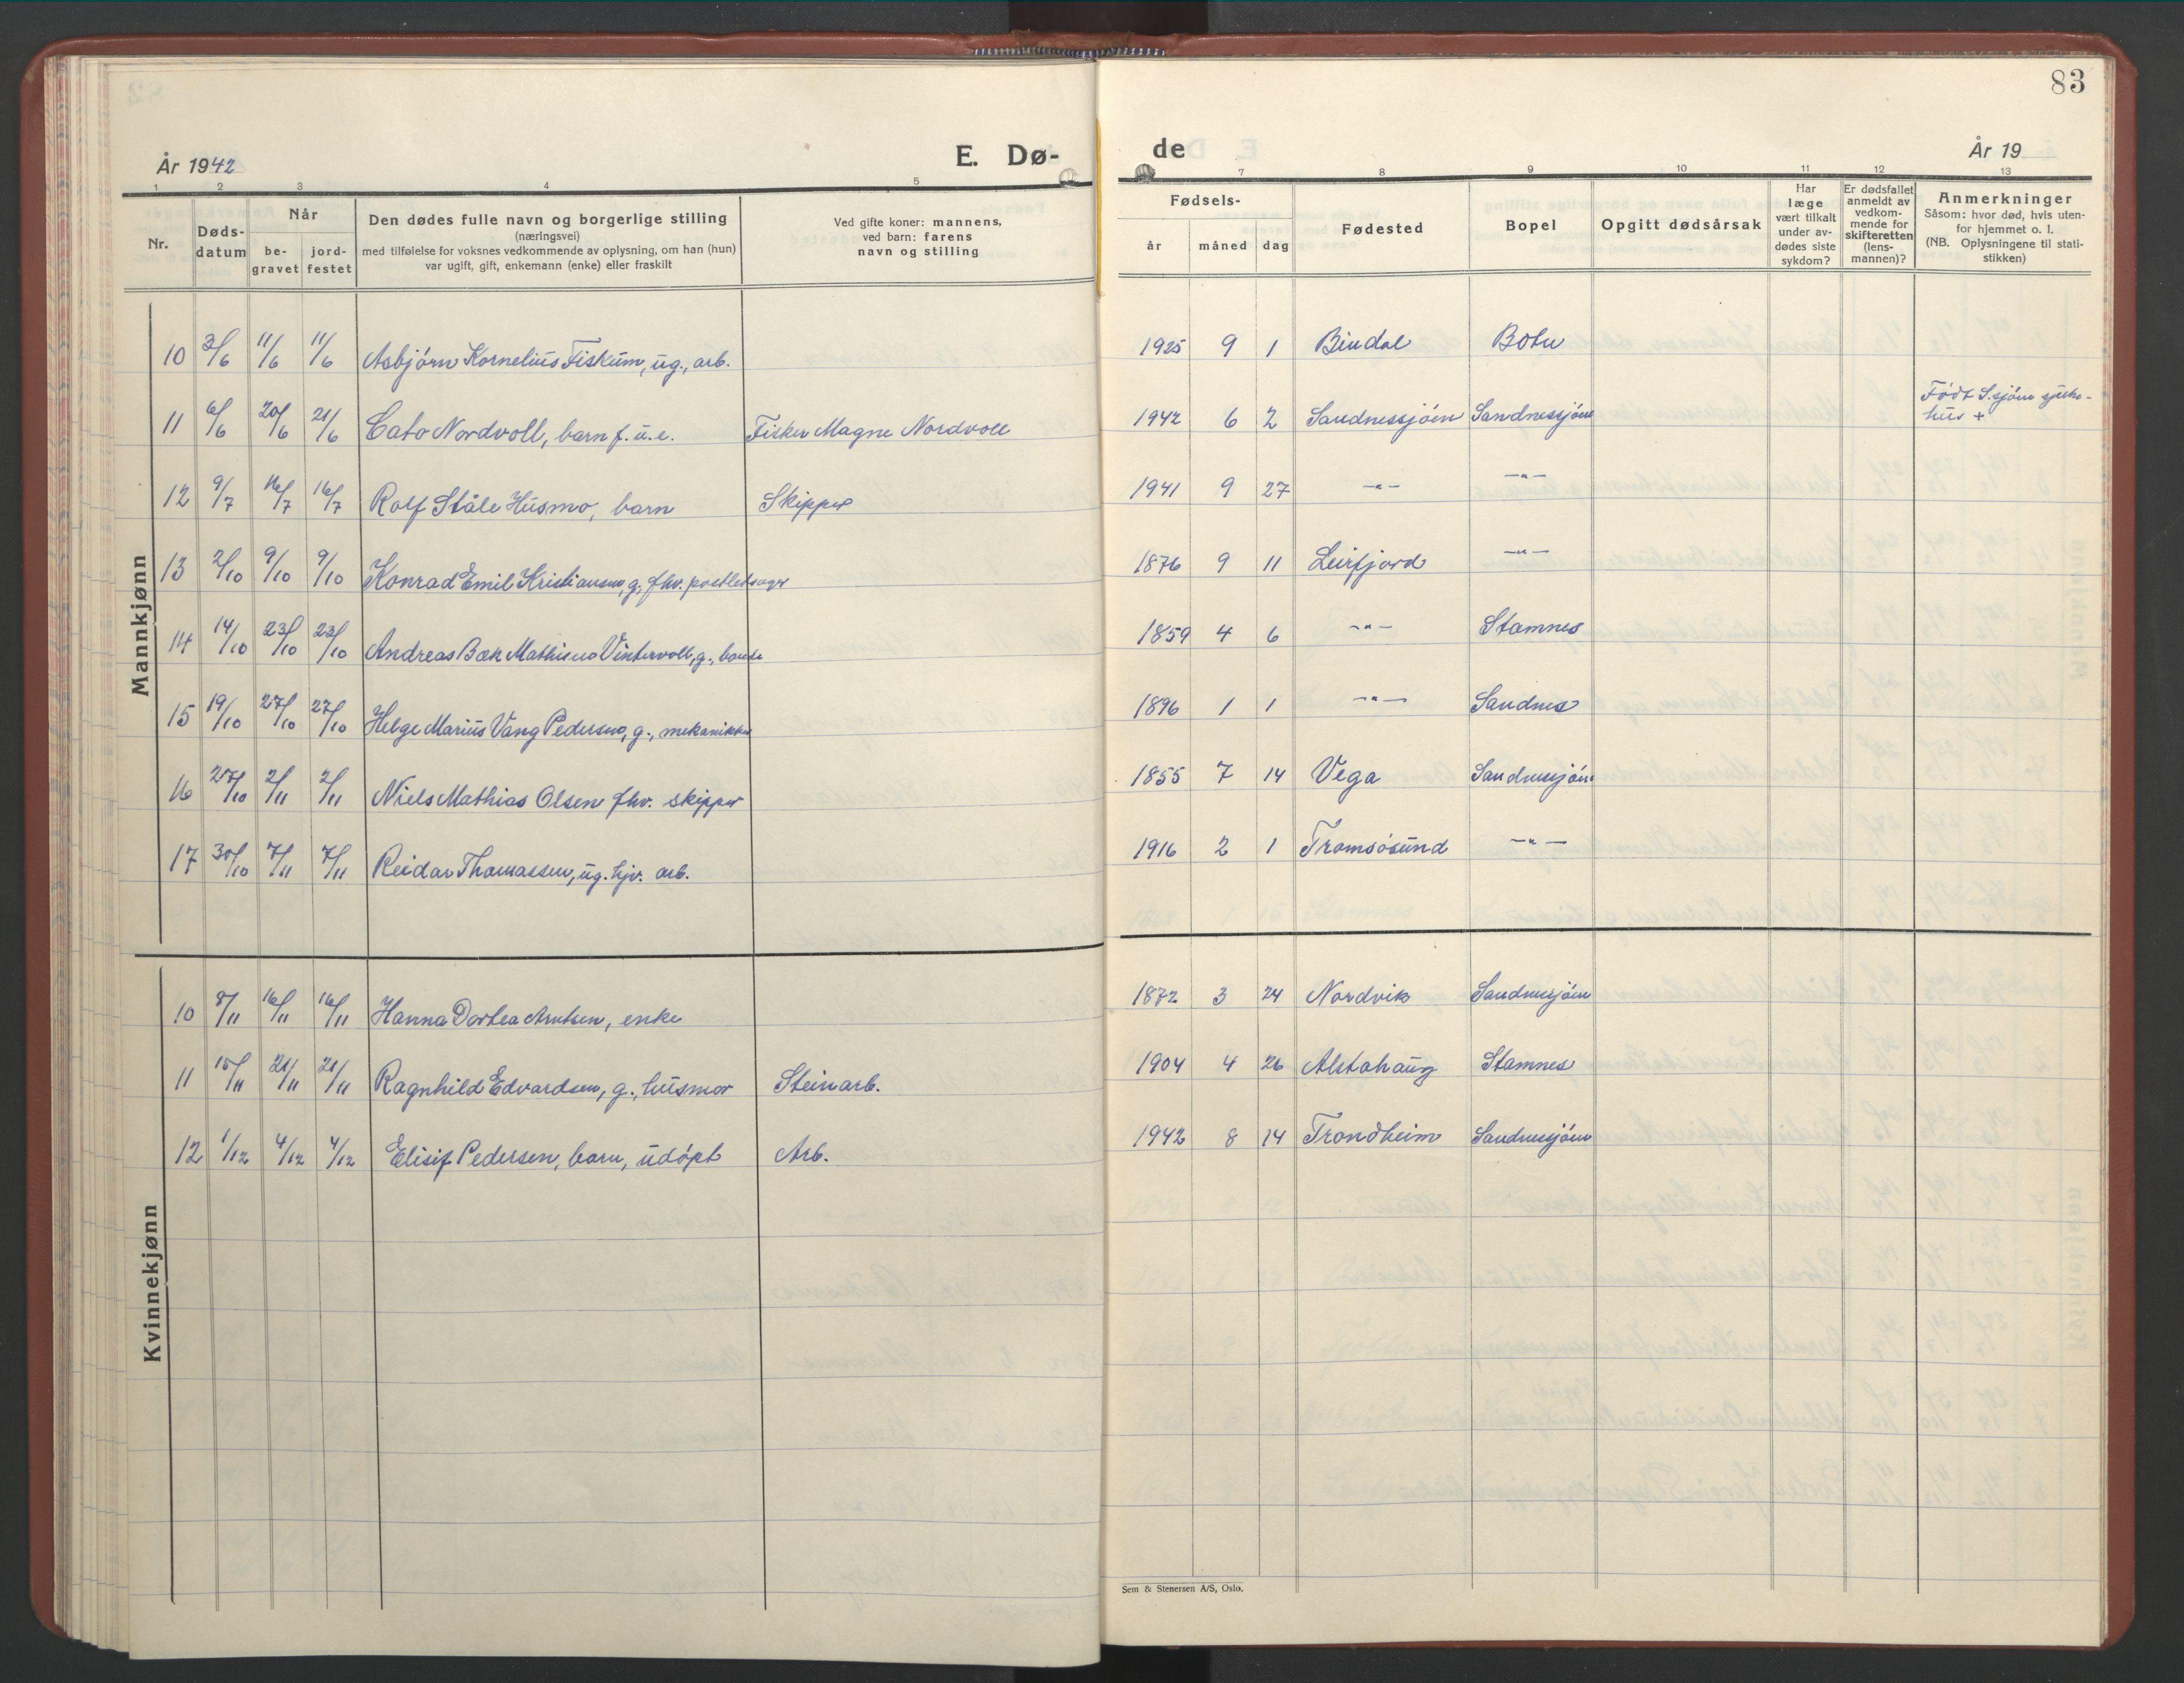 83
År 1942 E. Dø- de År 19
1 2 3 4 5 7 8 9 10 11 12 13
Nr.
Døds-
datum
Når
be-
gravet
jord-
festet
Den dødes fulle navn og borgerlige stilling
(næringsvei)
med tilføielse for voksnes vedkommende av oplysning, om han (hun)
var ugift, gift, enkemann (enke) eller fraskilt
Ved gifte koner: mannens,
ved barn: farens
navn og stilling
Fødsels-
år måned dag
Fødested
Bopel
Opgitt dødsårsak
Har
læge
vært tilkalt
under av-
dødes siste
sykdom?
Er dødsfallet
anmeldt av
vedkom-
mende for
skifteretten
(lens-
mannen)?
Anmerkninger
Såsom: hvor død, hvis uten-
for hjemmet o. l.
(NB. Oplysningene til stati-
stikken)
Mannkjønn
10 3/6 11/6 11/6 Asbjørn Kornelius Fiskum, ug., arb. 1925 9 1 Bindal Botn
11 6/6 20/6 21/6 Cato Nordvoll, barn f. u. e. Fisker Magne Nordvoll 1942 6 2 Sandnessjøen Sandnessjøen Født S.sjøen sjuke-
hus +
12 9/7 16/7 16/7 Rolf Ståle Husmo, barn Skipper 1941 9 27 -"- -"-
13 2/10 9/10 9/10 Konrad Emil Kristiansen, g., fhv. postledsager 1876 9 11 Leirfjord -"-
14 14/10 23/10 23/10 Andreas Bæk Mathisen Vintervoll, g., bonde 1859 4 6 -"- Stamnes
15 19/10 27/10 27/10 Helge Marius Vang Pedersen, g., mekaniker 1896 1 1 -"- Sandnes
16 27/10 2/11 2/11 Niels Mathias Olsen fhv. skipper 1855 7 14 Vega Sandnessjøen
17 30/10 7/11 7/11 Reidar Thomassen, ug. hjv. arb. 1916 2 1 Tromsøsund -"-
Kvinnekjønn
10 8/11 16/11 16/11 Hanna Dortea Arntsen, enke 1872 3 24 Nordvik Sandnessjøen
11 15/11 21/11 21/11 Ragnhild Edvardsen, g., husmor Steinarb. 1904 4 26 Alstahaug Stamnes
12 1/12 4/12 4/12 Elisif Pedersen, barn, udøpt Arb. 1942 8 14 Trondheim Sandnessjøen
Sem & Stenersen A/S, Oslo.